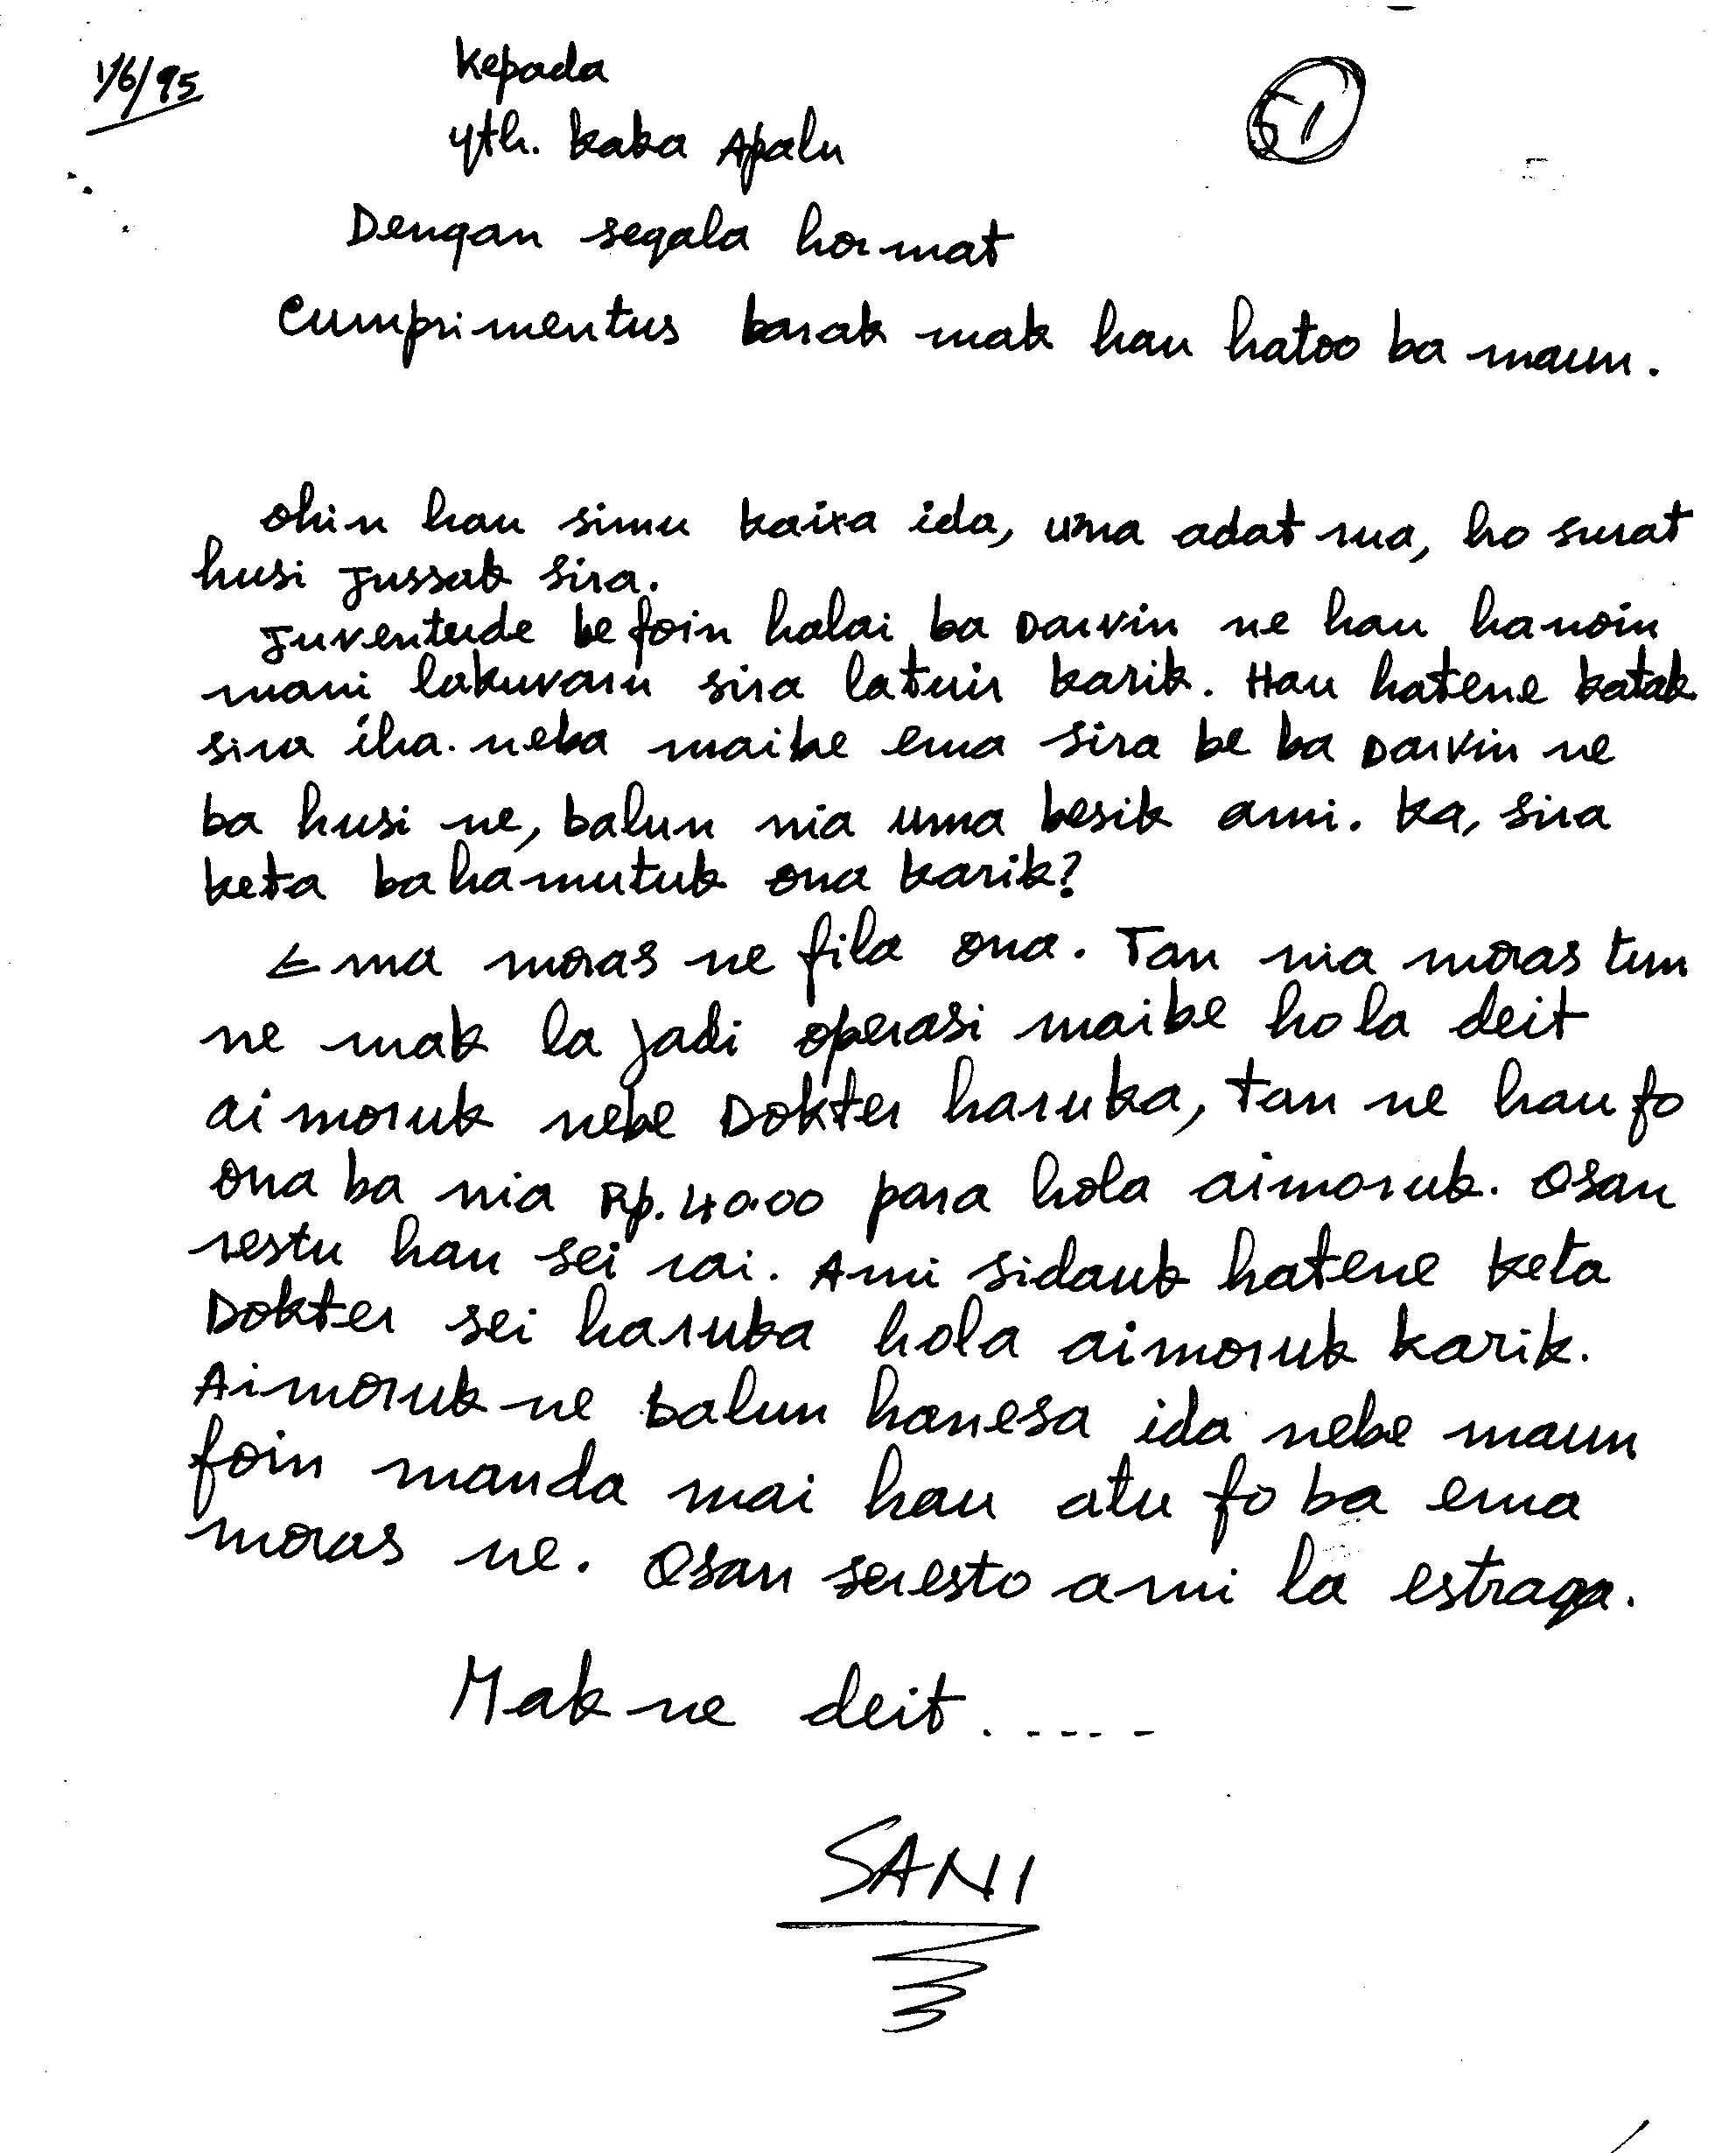 1/6/95
Kepada
51
yth. kaka Apalu
Dengan segala hormat
Cumprimentus barak mak hau hatoo ba maun.
ohin hau simu kaixa ida, uma adat rua, ho surat
husi Jussak sira.
Juventude be foin halai ba Darvin ne hau hanoin
mani lakuvaru sira latuir karik. Hau hatene katak
sira iha neba maibe ema sira be ba Darvin ne
ba husi ne, balun nia uma besik ami. Ka, sira
keta ba hamutuk ona karik?
Ema moras ne fila ona. Tan nia moras tun
ne mak la jadi operasi maibe hola deit
ai moruk nebe Dokter haruka, tan ne hau fo
ona ba nia Rp. 40.00 para hola aimoruk. Osan
restu hau sei rai. Ami sidauk hatene keta
Dokter sei haruka hola aimoruk karik.
Aimoruk ne balun hanesa ida nebe maun
foin manda mai hau atu fo ba ema
moras ne. Osan seresto ami la estraga.
Mak ne deit......
SANI